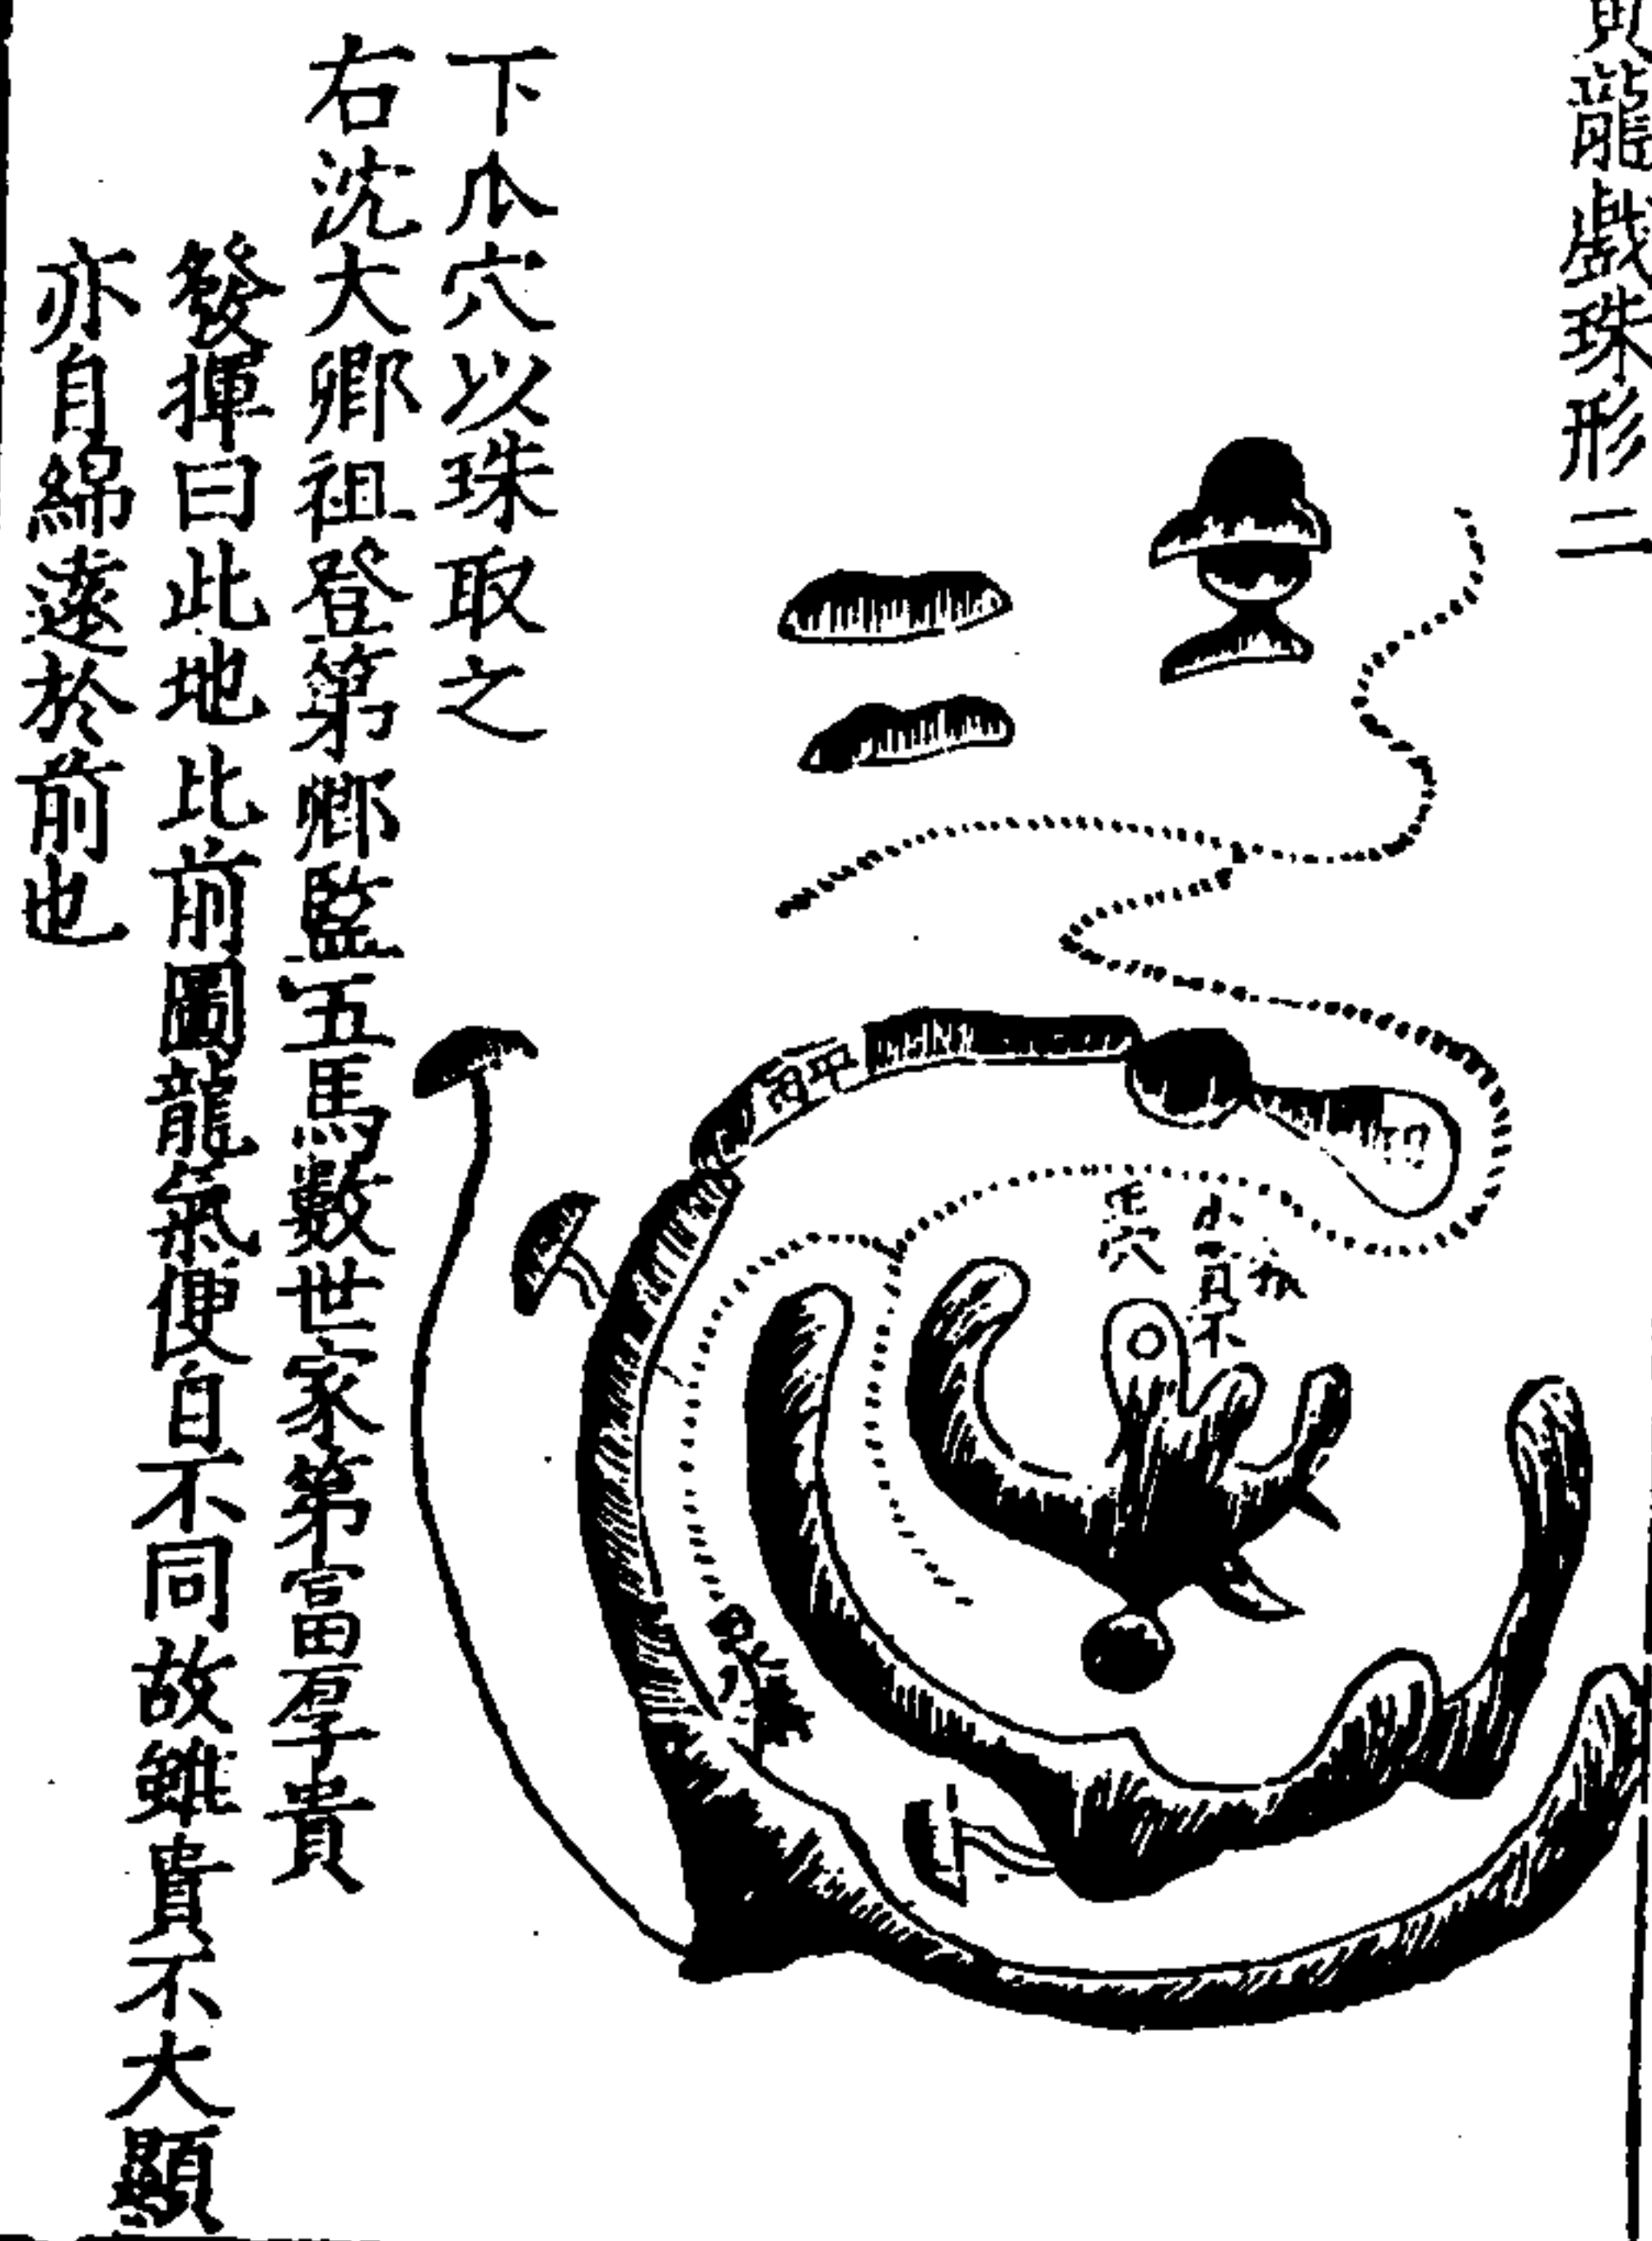 龍戲珠形二
下爪穴以珠取之
右沈大卿祖登第卿監五馬數世家第富厚貴
發揮曰此地比前圖龍氣便自不同故雖貴不大顯
亦自綿遠於前也